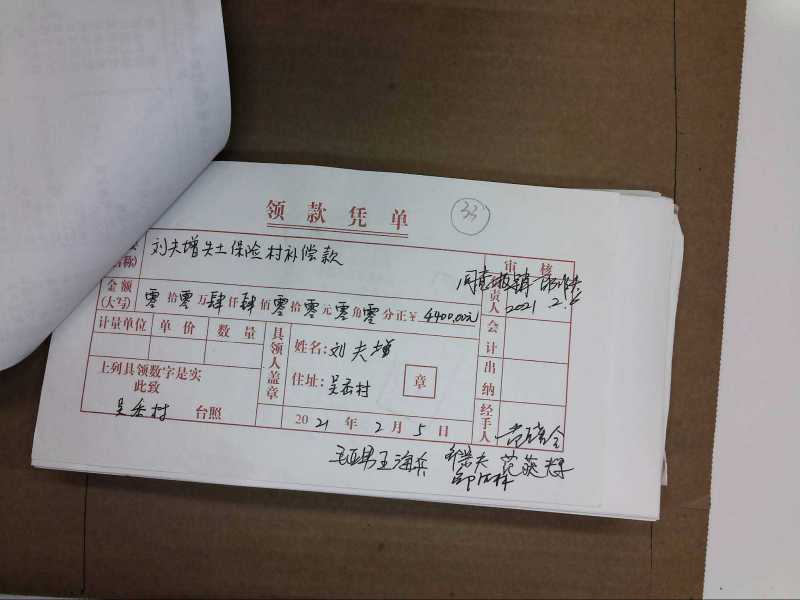 领款凭单
33
名称)
刘夫增失土保险村补偿款
审核
金额
(大写) 零拾零万肆仟肆佰零拾零元零角零分正¥ 4400.00元
责人
2021 2.5
计量单位 单价 数量
具领人盖章
姓名:刘夫增
住址:吴岙村
章
会计
出纳
经手人
上列具领数字是实
此致
吴岙村 台照
2021年2月5日
王海兵